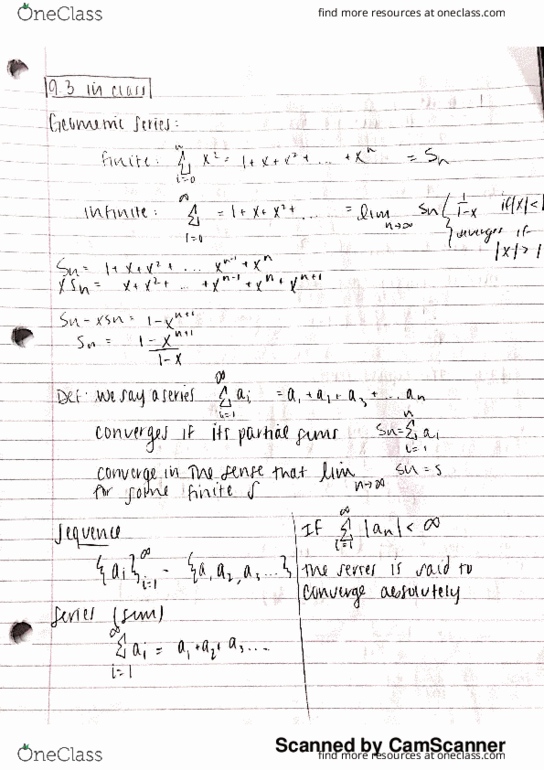 OneClass
find more resources at oneclass.com
9.3 in class
Geometric series:
finite: n Σ i=0 x² = 1 + x + x² + ... + xⁿ = Sn
infinite: ∞ Σ i=0 = 1 + x + x² + ...... = lim n→∞ Sn { 1/1-x if |x| < 1
diverges if |x| > 1
Sn = 1 + x + x² + ... xⁿ⁻¹ + xⁿ
xSn = x + x² + ... + xⁿ⁻¹ + xⁿ + xⁿ⁺¹
Sn - xSn = 1 - xⁿ⁺¹
Sn = 1 - xⁿ⁺¹ / 1 - x
Def: we say a series ∞ Σ i=1 ai = a₁ + a₂ + a₃ + ... an
converges if its partial sums Sn = n Σ i=1 ai
converge in the sense that lim n→∞ Sn = S
for some finite S
Sequence
{ai}∞ i=1 - {a₁ a₂, a₃ ...}
Series (sum)
∞ Σ i=1 ai = a₁ + a₂ + a₃ ....
If ∞ Σ i=1 |an| < ∞
the series is said to
converge absolutely
Scanned by CamScanner
OneClass
find more resources at oneclass.com